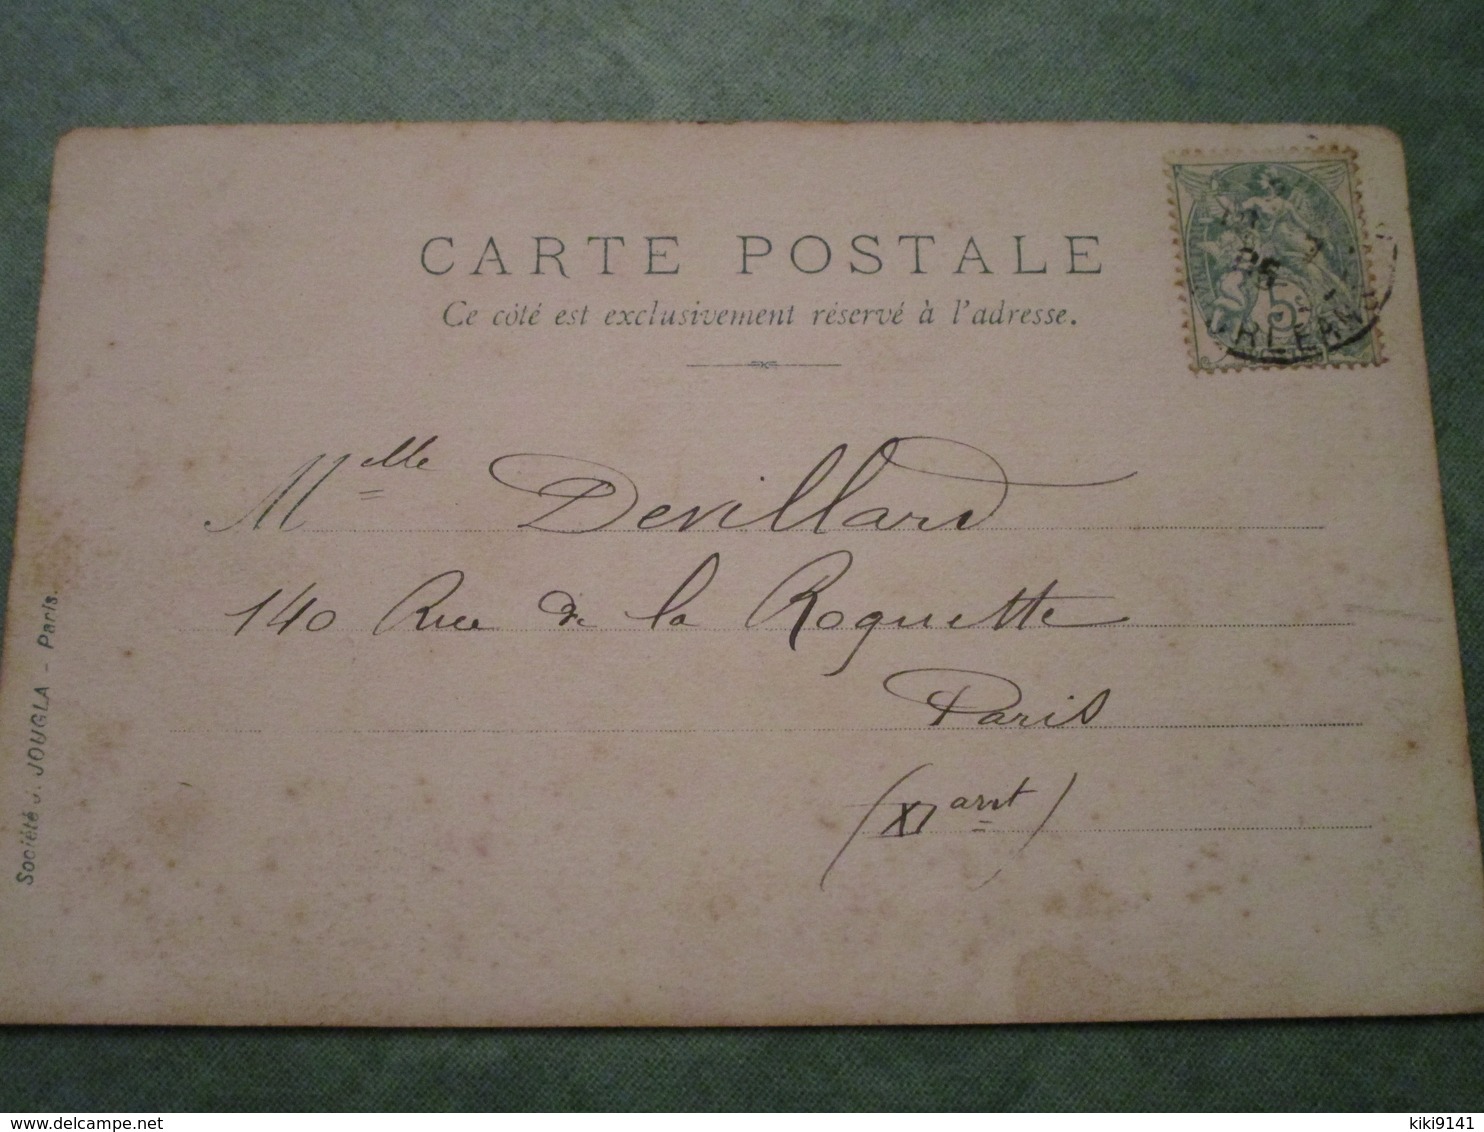 CARTE POSTALE
Ce côté est exclusivement réservé à l'adresse.
5
ORLEANS
Melle Devillard
140 Rue de la Roquette
Paris
(XI arrt)
Société J. JOUGLA - Paris.
delcampe.net
kiki9141